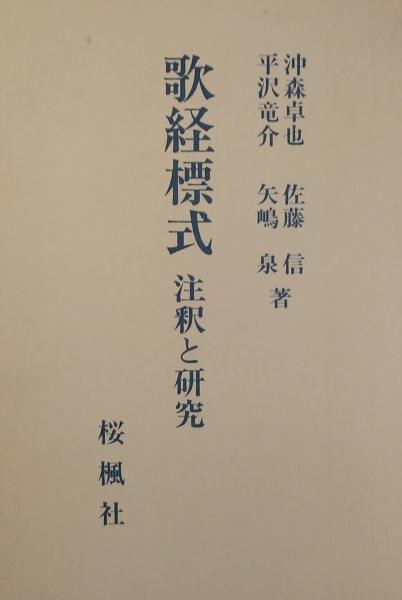 沖森卓也 佐藤信
平沢竜介 矢嶋泉 著
歌経標式 注釈と研究
桜楓社